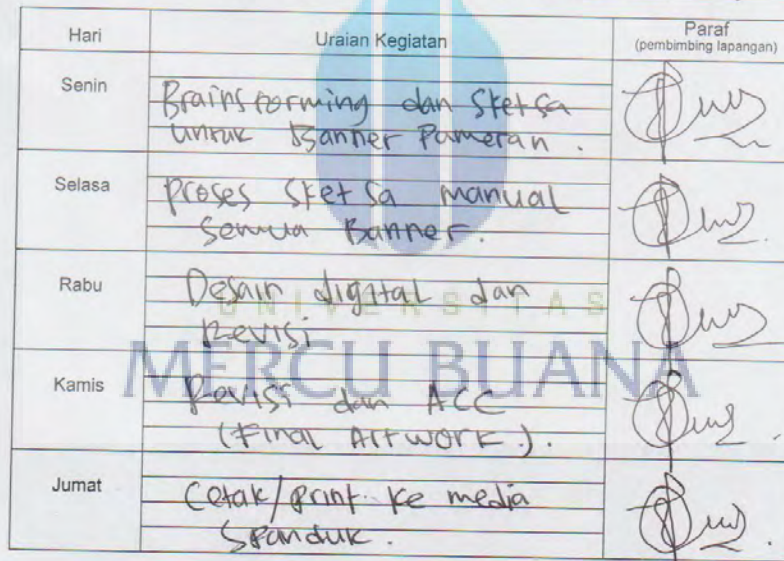 Hari Uraian Kegiatan Paraf
(pembimbing lapangan)
Senin Brainstorming dan Sketsa
untuk Banner Pameran.
Selasa Proses Sketsa manual
Semua Banner.
Rabu Desain digital dan
Revisi
UNIVERSITAS
MERCU BUANA
Kamis Revisi dan ACC
(Final Artwork.).
Jumat Cetak/print ke media
Spanduk.